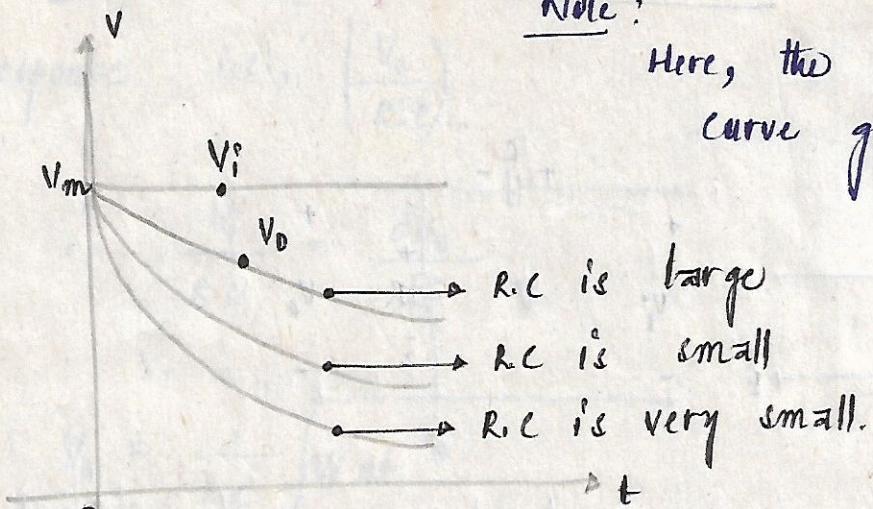 Note:
Here, the
curve g
V
Vm
Vi
Vo
R.C is large
R.C is small
R.C is very small.
t